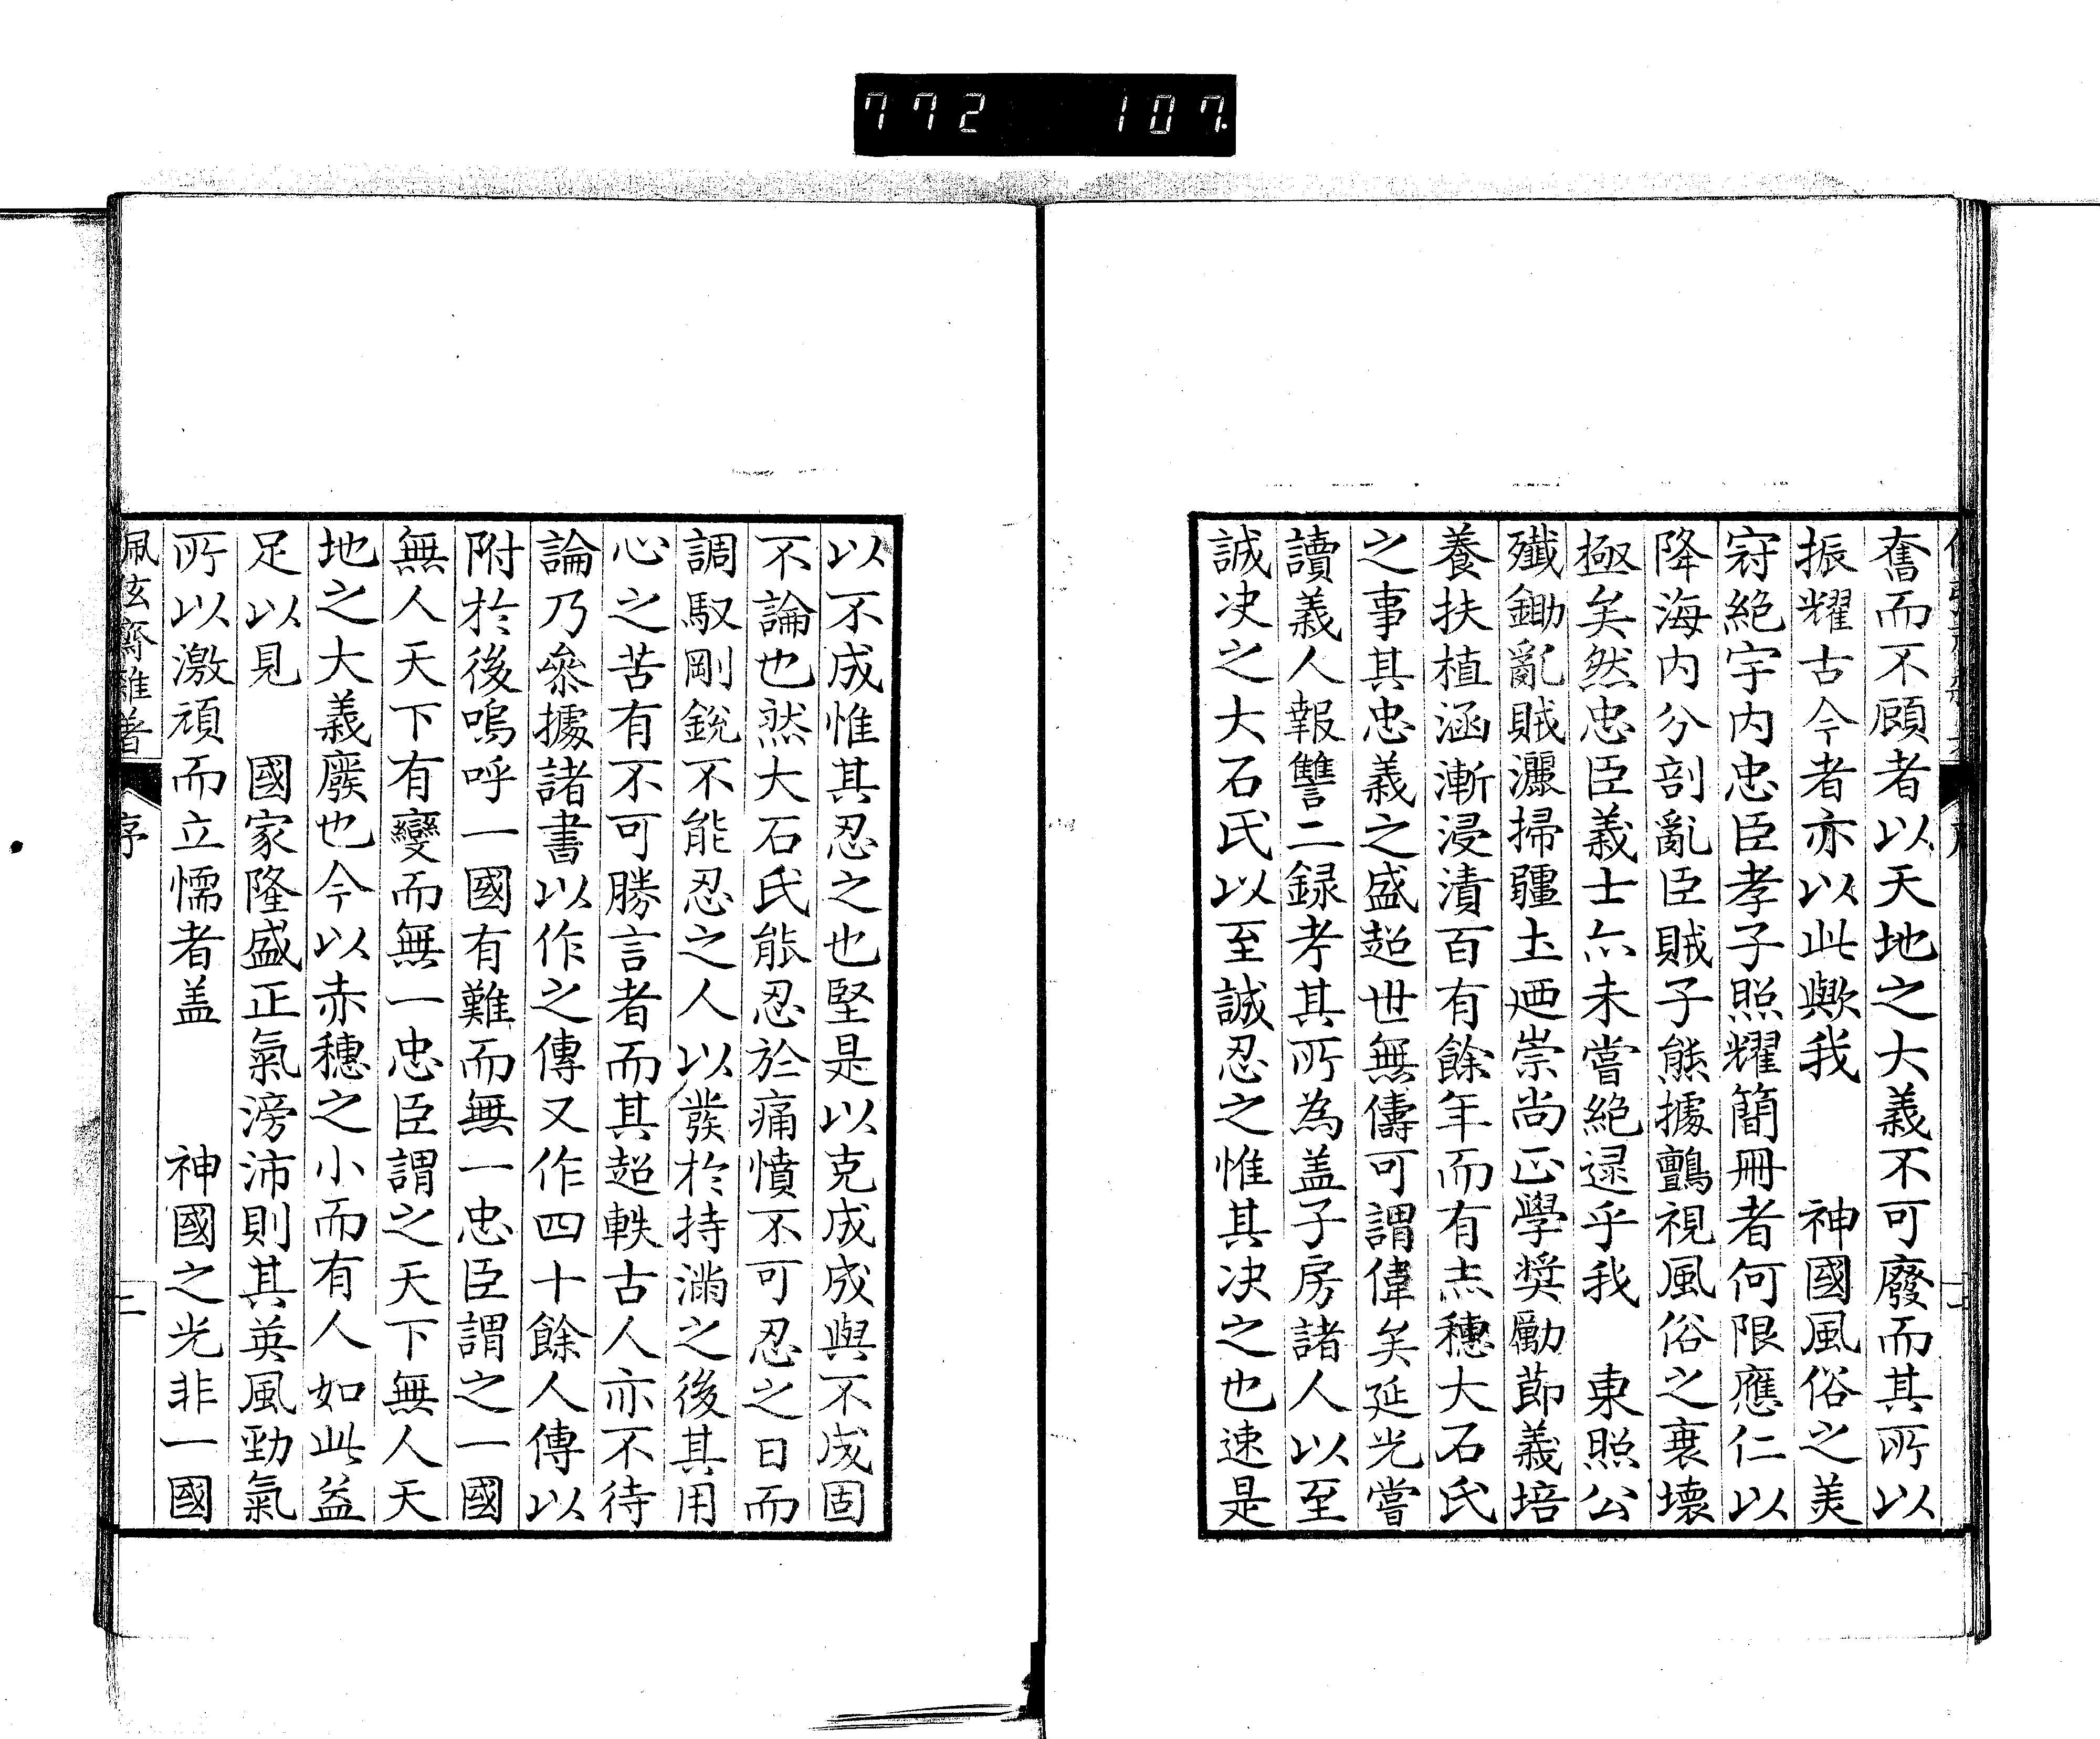 772 107
奮而不顧者以天地之大義不可廢而其所以
振耀古今者亦以此歟我 神國風俗之美
冠絕宇内忠臣孝子照耀簡冊者何限應仁以
降海内分剖亂臣賊子熊據鸇視風俗之衰壞
極矣然忠臣義士亦未嘗絕逮乎我 東照公
殲鋤亂賊灑掃疆土迺崇尚正學奬勵節義培
養扶植涵漸浸漬百有餘年而有赤穗大石氏
之事其忠義之盛超世無儔可謂偉矣延光嘗
讀義人報讐二録考其所為盖子房諸人以至
誠决之大石氏以至誠忍之惟其决之也速是
以不成惟其忍之也堅是以克成成與不成固
不論也然大石氏能忍於痛憤不可忍之日而
調馭剛銳不能忍之人以發於持滿之後其用
心之苦有不可勝言者而其超軼古人亦不待
論乃叅據諸書以作之傳又作四十餘人傳以
附於後嗚呼一國有難而無一忠臣謂之一國
無人天下有變而無一忠臣謂之天下無人天
地之大義廢也今以赤穗之小而有人如此益
足以見 國家隆盛正氣滂沛則其英風勁氣
所以激頑而立懦者盖 神國之光非一國
佩弦齋雜著 序 二